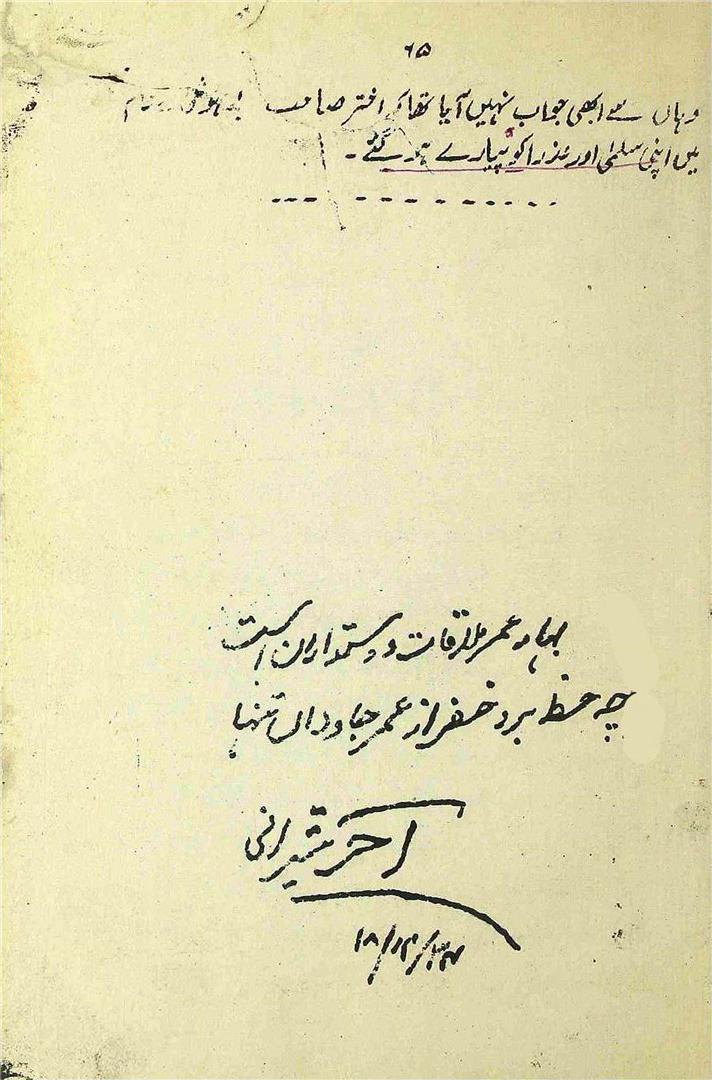 ۶۵
وہاں سے ابھی جواب نہیں آیا تھا کہ اختر صاحب
میں اپنی سلمیٰ اور عذرا کو پیارے ہو گئے۔
بہار عمر ملاقات دوستداران است
چہ حظ برد خضر از عمر جاوداں تنہا
اختر شیرانی